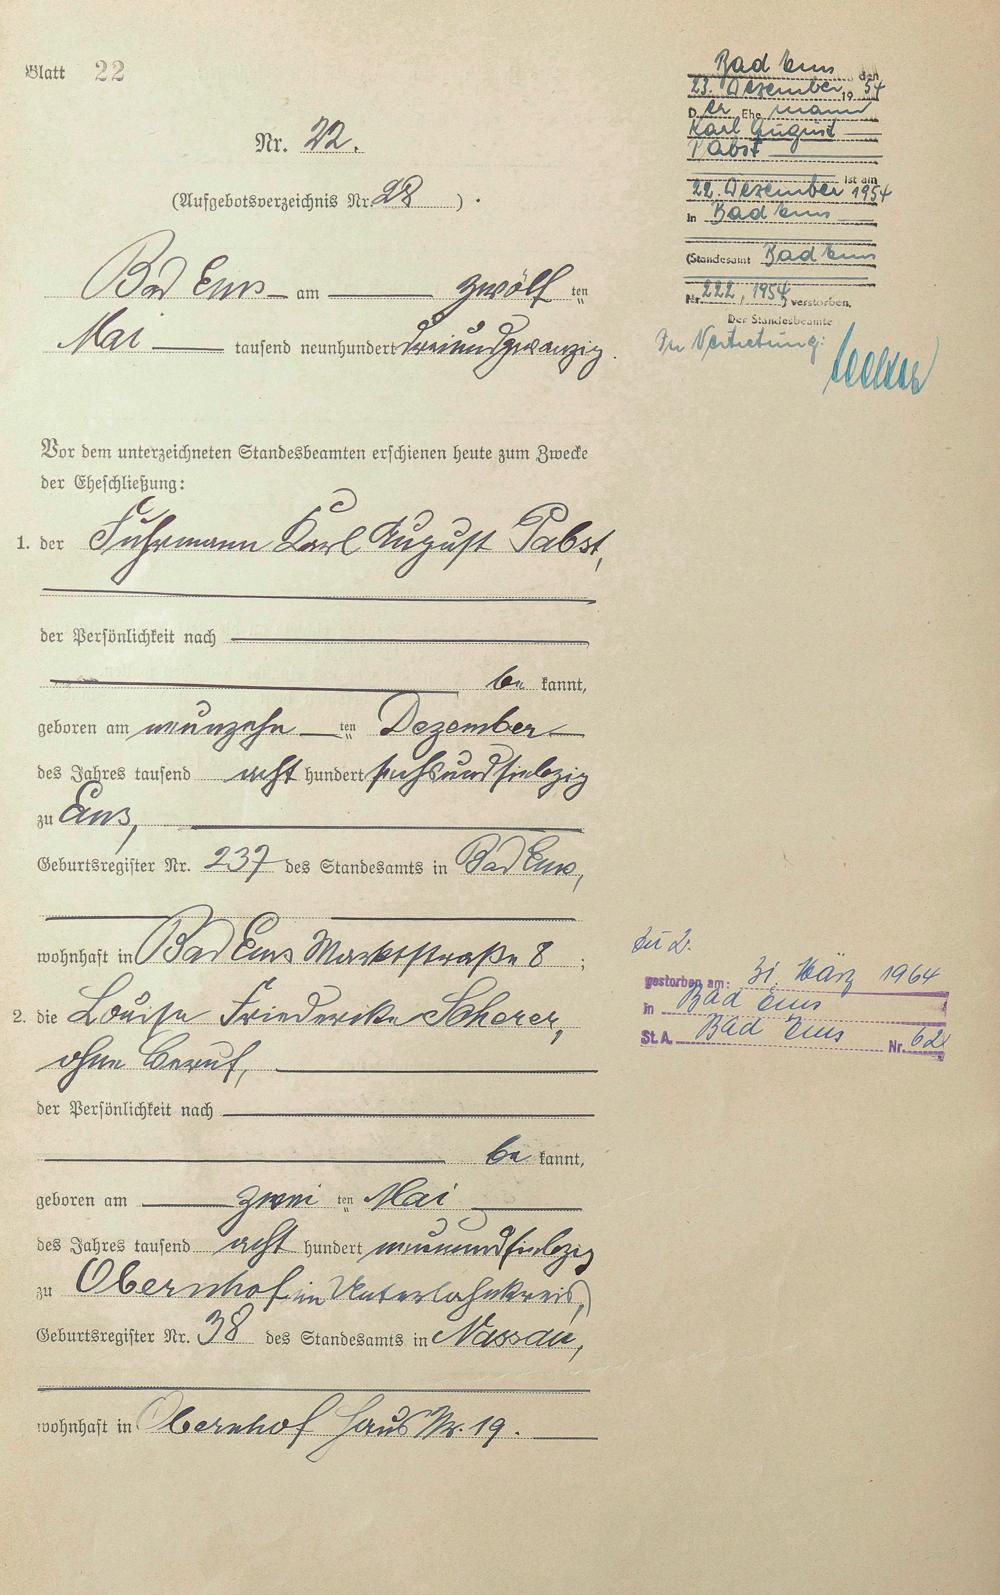 Blatt 22
Nr. 22.
(Aufgebotsverzeichnis Nr. 28).
Bad Ems am zwölften
Mai tausend neunhundert dreiundzwanzig.
Vor dem unterzeichneten Standesbeamten erschienen heute zum Zwecke
der Eheschließung:
1. der Fuhrmann Karl August Pabst,
der Persönlichkeit nach
bekannt,
geboren am neunzehnten Dezember
des Jahres tausend acht hundert sechsundsiebzig
zu Ems,
Geburtsregister Nr. 237 des Standesamts in Bad Ems,
wohnhaft in Bad Ems Marktstraße 8;
2. die Louise Friederike Scherer,
ohne Beruf,
der Persönlichkeit nach
bekannt,
geboren am zweiten Mai
des Jahres tausend acht hundert neunundsiebzig
zu Obernhof im Unterlahnkreis,
Geburtsregister Nr. 38 des Standesamts in Nassau,
wohnhaft in Obernhof Haus Nr. 19.
Bad Ems den
23. Dezember 1954
Der Ehemann
Karl August
Pabst
ist am
22. Dezember 1954
in Bad Ems
(Standesamt Bad Ems
Nr. 222, 1954) verstorben.
Der Standesbeamte
In Vertretung:
Zu 2.
gestorben am: 31. März 1964
in Bad Ems
St. A. Bad Ems Nr. 62